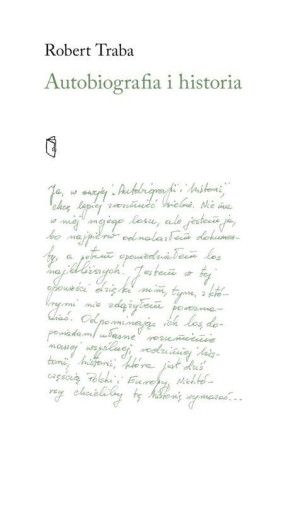 Robert Traba
Autobiografia i historia
Ja, w swojej „Autobiografii i historii”,
chcę lepiej zrozumieć siebie. Nie ma
w niej mojego losu, ale jestem ja,
bo najpierw odnalazłem dokumen-
ty, a potem opowiedziałem los
najbliższych. Jestem w tej
opowieści dzięki nim, tym, z któ-
rymi nie zdążyłem porozma-
wiać. Odpominając ich los do-
powiadam własne rozumienie
naszej wspólnej, rodzinnej his-
torii, historii, która jest dziś
częścią Polski i Europy. Niektó-
rzy chcieliby tę historię wymazać...